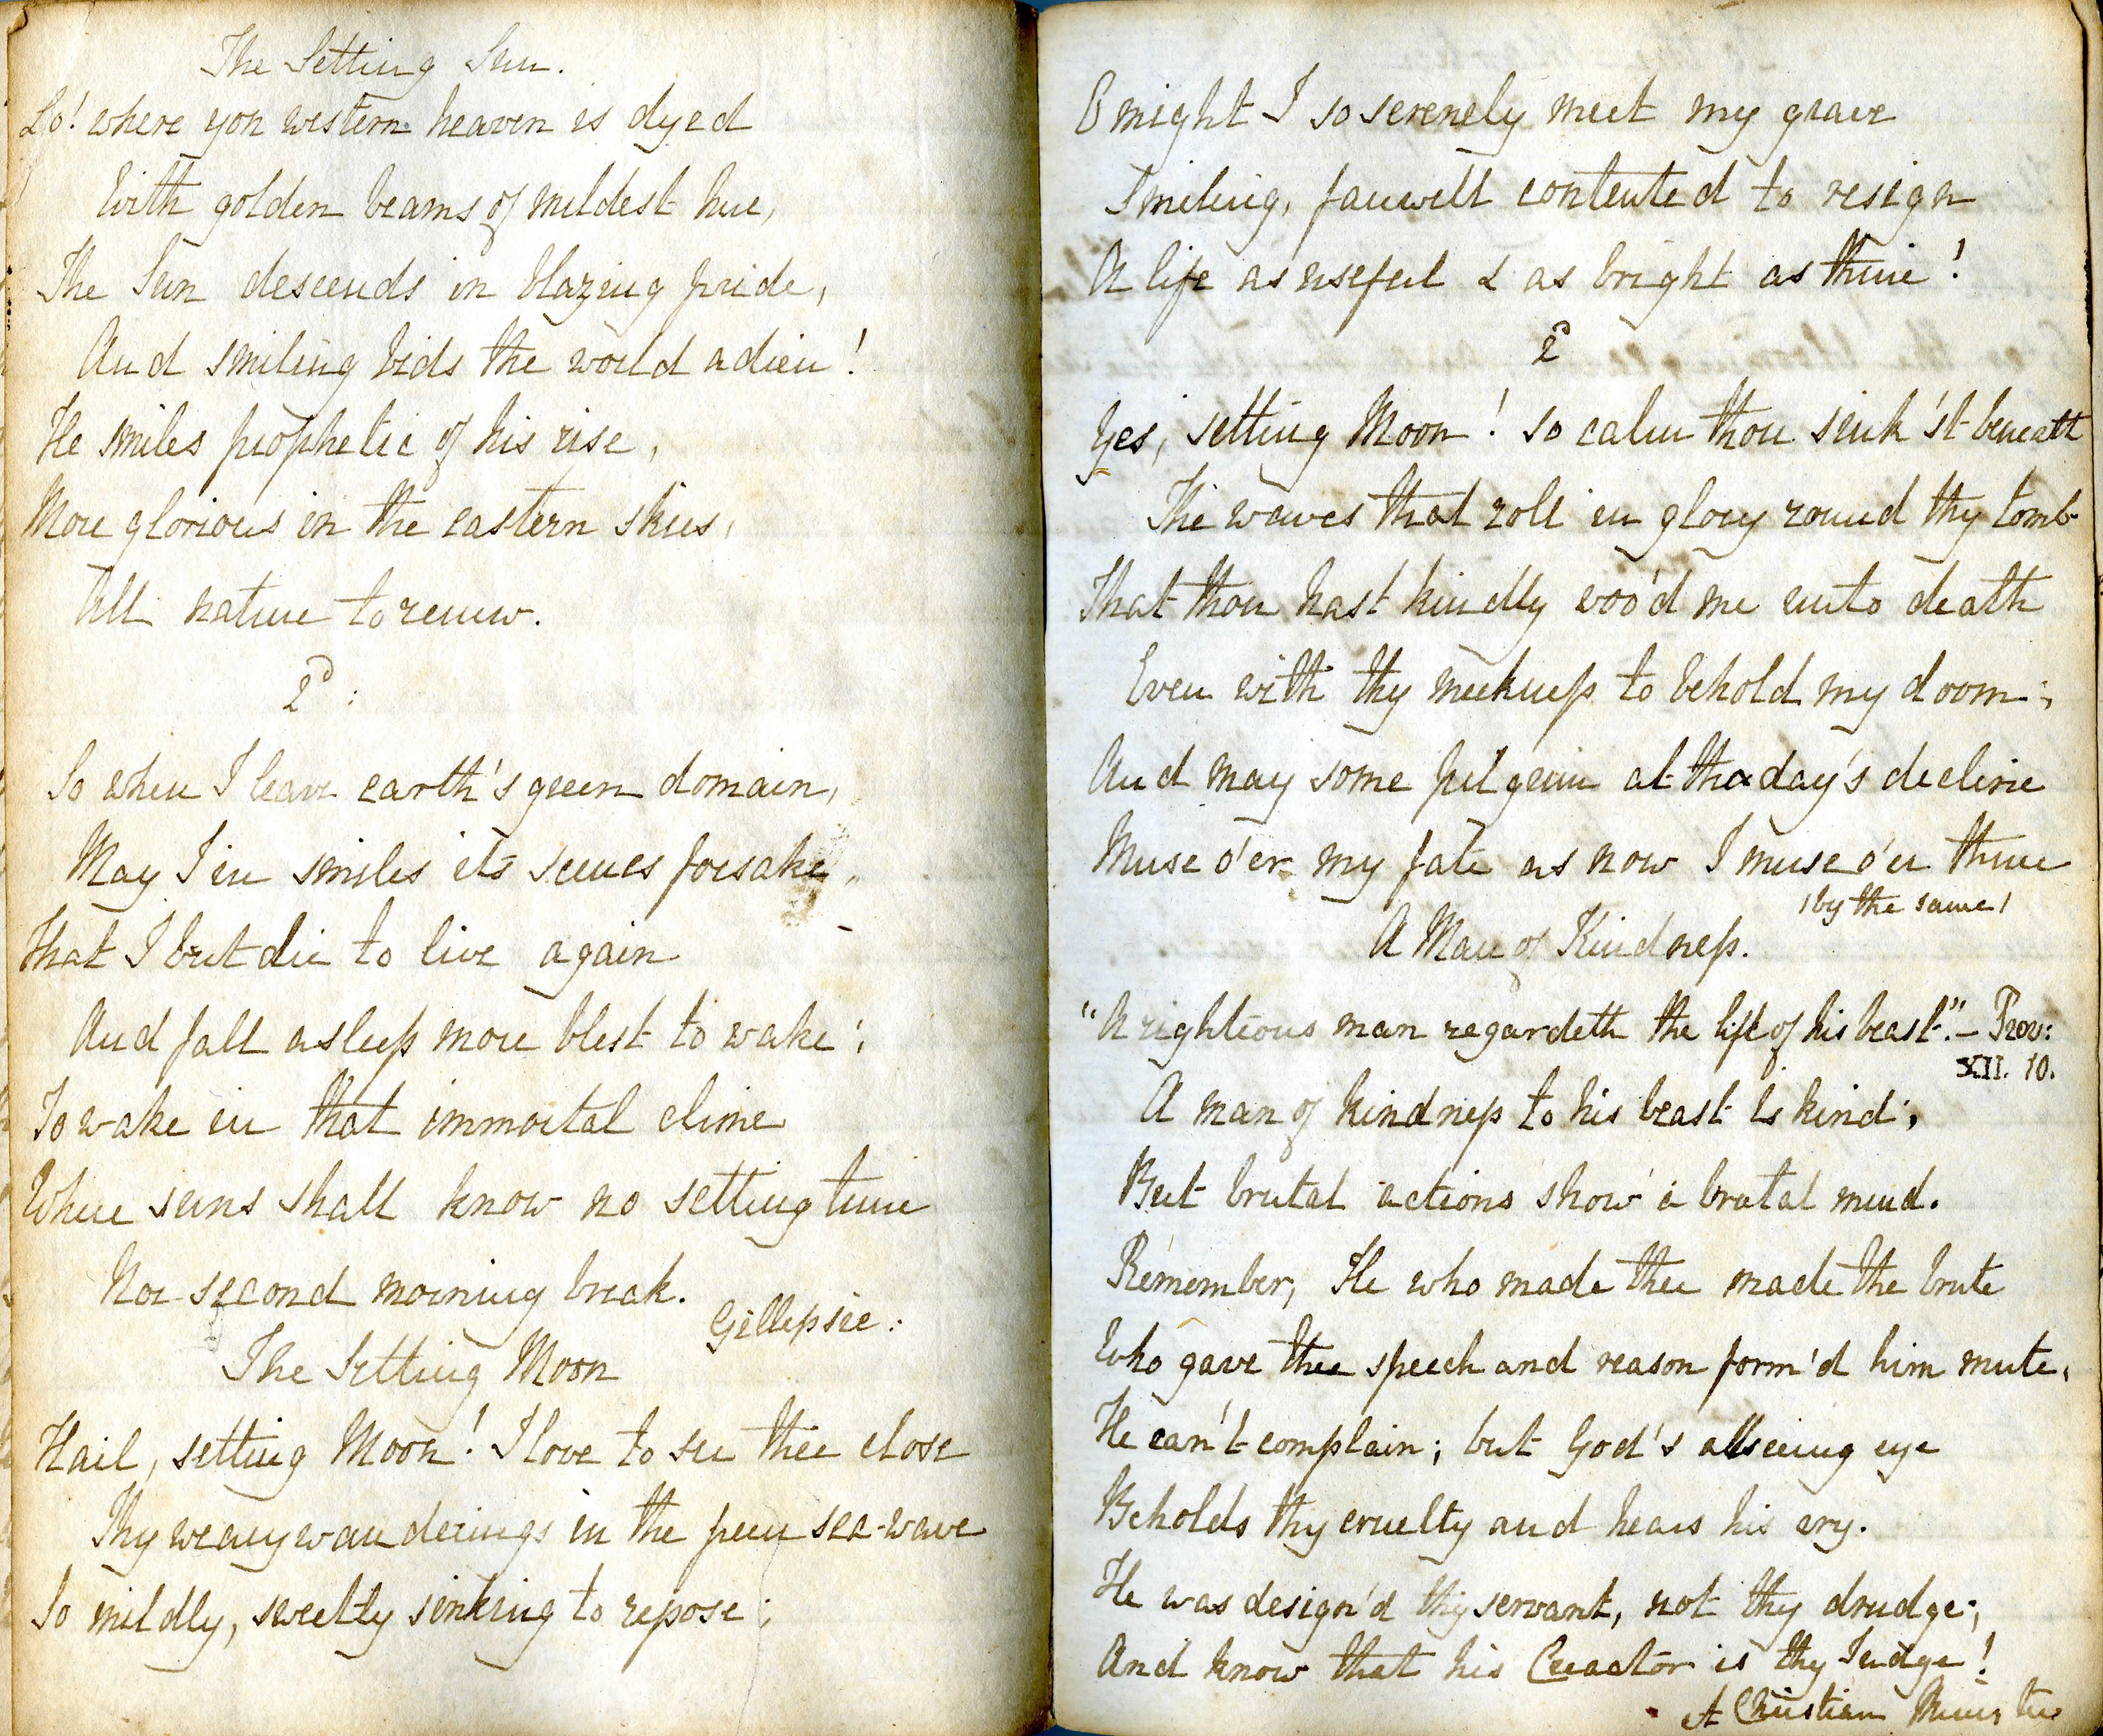 The Setting Sun.
Lo! where yon western heaven is dyed
With golden beams of mildest hue,
The Sun descends in blazing pride,
And smiling bids the world adieu!
He smiles prophetic of his rise,
More glorious in the eastern skies,
All nature to renew.
2d:
So when I leave earth's green domain,
May I in smiles its scenes forsake,
That I but die to live again
And fall asleep more blest to wake;
To wake in that immortal clime
Where suns shall know no setting time
Nor second morning break.
Gillepsie.
The Setting Moon
Hail, setting Moon! I love to see thee close
Thy weary wanderings in the peen sea-wave
So mildly, sweetly sinking to repose;
O might I so serenely meet my grave
Smiling, farewell contented to resign
A life as useful & as bright as thine!
2d
Yes, setting Moon! so calm thou sink'st beneath
The waves that roll in glory round thy tomb
That thou hast kindly woo'd me unto death
Even with thy meekness to behold my doom;
And may some pilgrim at tha day's decline
Muse o'er my fate as now I muse o'er thine
(by the same)
A Man of Kindness.
"A righteous man regardeth the life of his beast." - Prov:
XII. 10.
A man of kindness to his beast is kind;
But brutal actions show a brutal mind.
Remember, He who made thee made the brute
Who gave thee speech and reason form'd him mute,
He can't complain; but God's allseeing eye
Beholds thy cruelty and hears his cry.
He was design'd thy servant, not thy drudge;
And know that his Creactor is thy Judge!
A Christian Minister